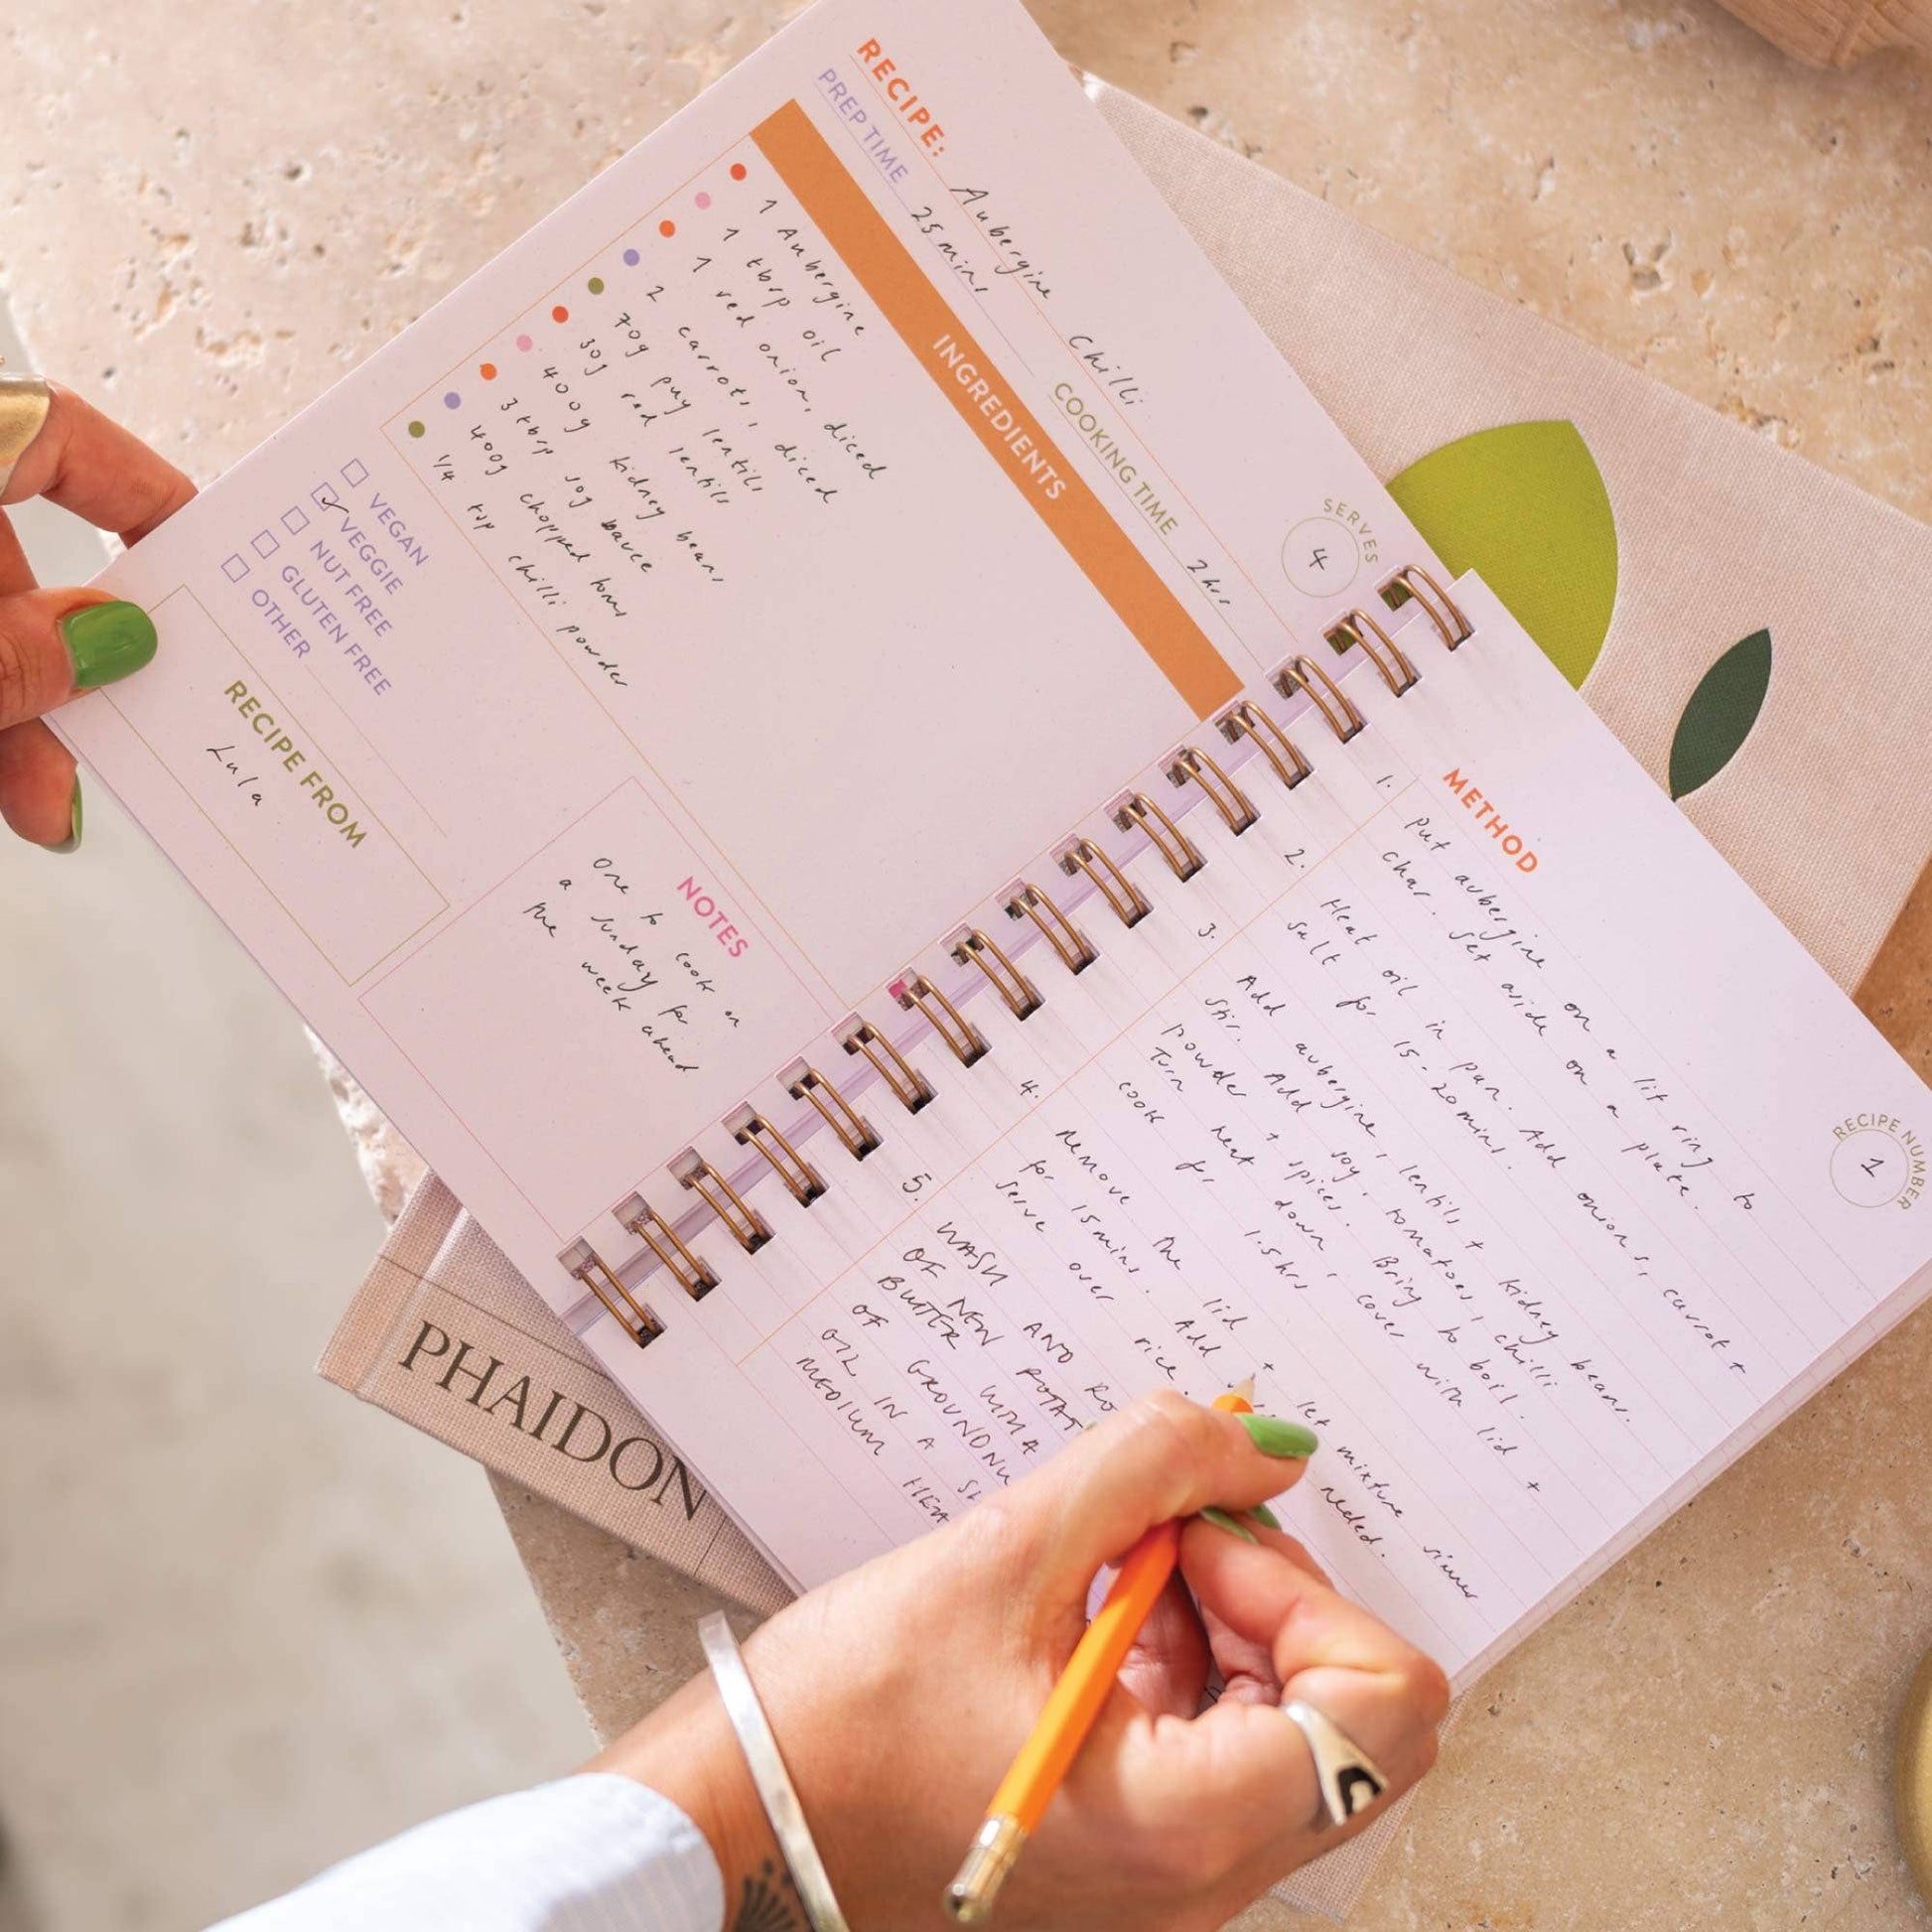 RECIPE: Aubergine Chilli
PREP TIME 25mins COOKING TIME 2hrs
SERVES
4
INGREDIENTS
1 Aubergine
1 tbsp oil
1 red onion, diced
2 carrots, diced
70g puy lentils
30g red lentils
400g kidney beans
3 tbsp soy sauce
400g chopped toms
1/4 tsp chilli powder
VEGAN
VEGGIE
NUT FREE
GLUTEN FREE
OTHER
RECIPE FROM
Lula
NOTES
One to cook on
a Sunday for
the week ahead
METHOD
RECIPE NUMBER
1
1. Put aubergine on a lit ring to
char. Set aside on a plate.
2. Heat oil in pan. Add onions, carrot +
salt for 15-20mins.
3. Add aubergine, lentils + kidney beans.
Stir. Add soy, tomatoes, chilli
powder + spices. Bring to boil.
Turn heat down, cover with lid +
cook for 1.5hrs
4. Remove the lid + let mixture simmer
for 15mins. Add needed.
Serve over rice.
5. WASH AND
OF NEW
BUTTER WITH A
OF GROUNDNU
OIL IN A
MEDIUM HEA
PHAIDON